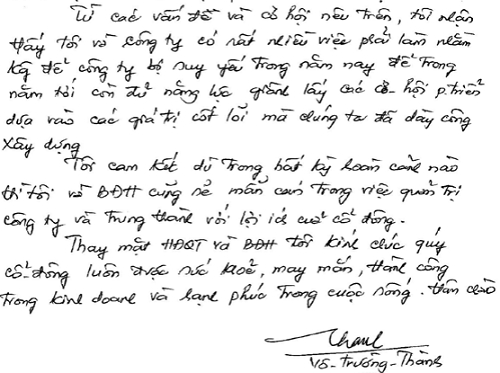 Từ các vấn đề và cơ hội nêu trên, tôi nhận
thấy tôi và Công ty có rất nhiều việc phải làm nhằm
để công ty bị suy yếu trong năm nay để trong
năm tới còn đủ năng lực giành lấy các cơ hội p.triển
dựa vào các giá trị cốt lõi mà chúng ta đã dày công
xây dựng
Tôi cam kết dù trong bất kỳ hoàn cảnh nào
thì tôi và BĐH cũng sẽ mẫn cán trong việc quản trị
công ty và trung thành với lợi ích của cổ đông.
Thay mặt HĐQT và BĐH tôi kính chúc quý
cổ đông luôn được sức khoẻ, may mắn, thành công
trong kinh doanh và hạnh phúc trong cuộc sống. Thân chào
Thanh
Võ - Trường - Thành